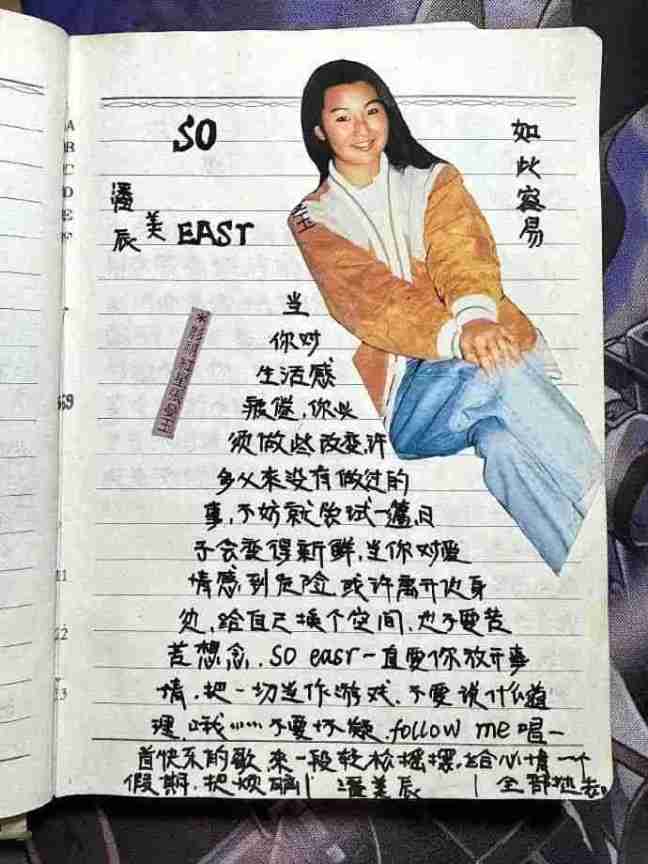 SO
如此容易
潘美辰
EAST
*影視红星張曼玉
当
你对
生活感
疲倦.你必
须做些改变.许
多从来没有做过的
事,不妨就尝试一遍,日
子会变得新鲜,当你对爱
情感到危险,或许离开他身
处,给自己换个空间.也不要苦
苦想念.SO easr一直要你放开事
情,把一切当作游戏.不要说什么道
理,哦……不要怀疑.follow me唱一
首快乐的歌 来一段轻松摇摆,给心情一个
假期.把烦恼 潘美辰 全部抛去.
A
B
C
D
E
F